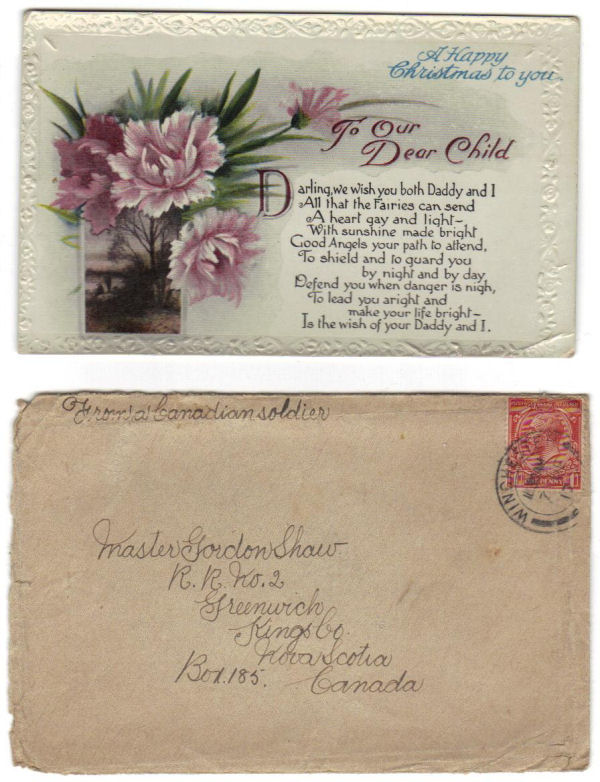 A Happy
Christmas to you.
To Our
Dear Child
Darling, we wish you both Daddy and I
All that the Fairies can send
A heart gay and light–
With sunshine made bright
Good Angels your path to attend,
To shield and to guard you
by night and by day,
Defend you when danger is nigh,
To lead you aright and
make your life bright–
Is the wish of your Daddy and I.
From a Canadian soldier
ONE PENNY
WINCHESTER
Master Gordon Shaw
R. R. No. 2
Greenwich
Kings Co.
Nova Scotia
Box.185.
Canada